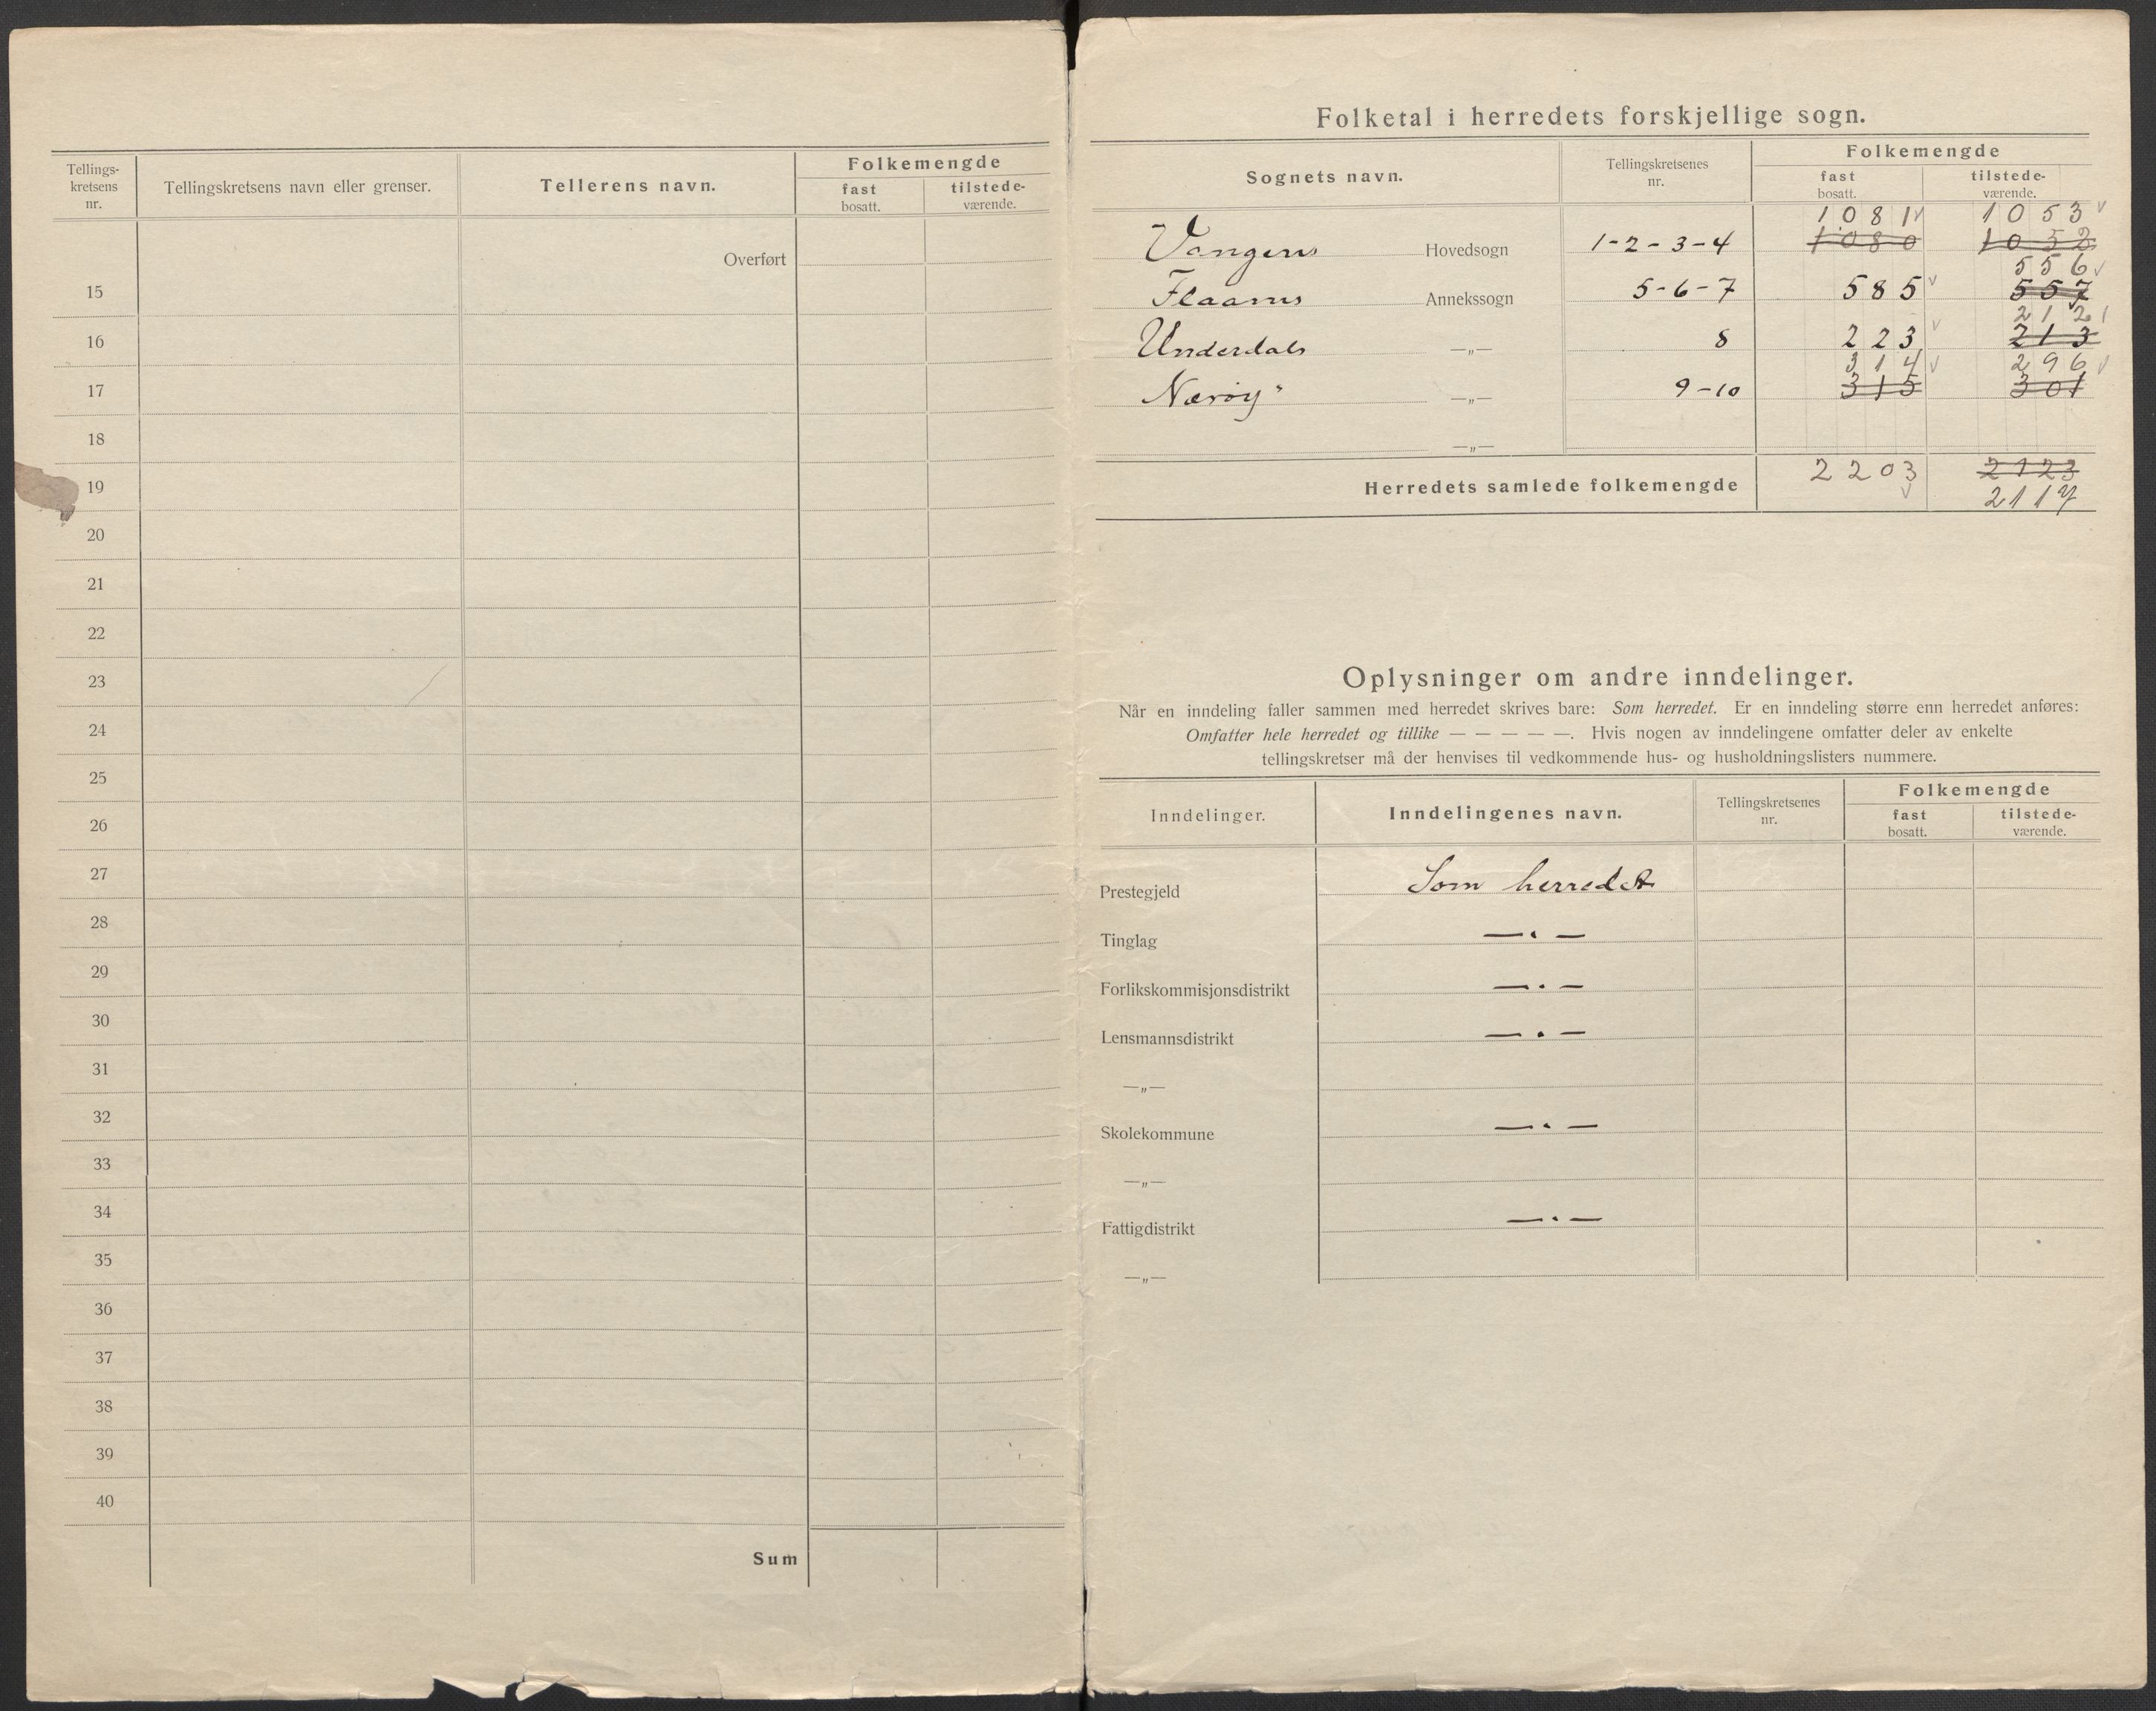 Tellings-
kretsens
nr.
Tellingskretsens navn eller grenser.
Tellerens navn.
Folkemengde
fast
bosatt.
tilstede-
værende.
Overført
15
16
17
18
19
20
21
22
23
24
25
26
27
28
29
30
31
32
33
34
35
36
37
38
39
40
Sum
Folketal i herredets forskjellige sogn.
Sognets navn.
Tellingskretsenes
nr.
Folkemengde
fast
bosatt.
tilstede-
værende.
1081 1053
Vangens Hovedsogn 1-2-3-4 1080 1052
556
Flaams Annekssogn 5-6-7 585 557
212
Underdals —„— 8 223 213
314 296
Nærøy —„— 9-10 315 301
—„—
Herredets samlede folkemengde 2203 2123
2117
Oplysninger om andre inndelinger.
Når en inndeling faller sammen med herredet skrives bare: Som herredet. Er en inndeling større enn herredet anføres:
Omfatter hele herredet og tillike — — — — —. Hvis nogen av inndelingene omfatter deler av enkelte
tellingskretser må der henvises til vedkommende hus- og husholdningslisters nummere.
Inndelinger.
Inndelingenes navn.
Tellingskretsenes
nr.
Folkemengde
fast
bosatt.
tilstede-
værende.
Prestegjeld Som herredet
Tinglag —„—
Forlikskommisjonsdistrikt —„—
Lensmannsdistrikt —„—
—„—
Skolekommune —„—
—„—
Fattigdistrikt —„—
—„—